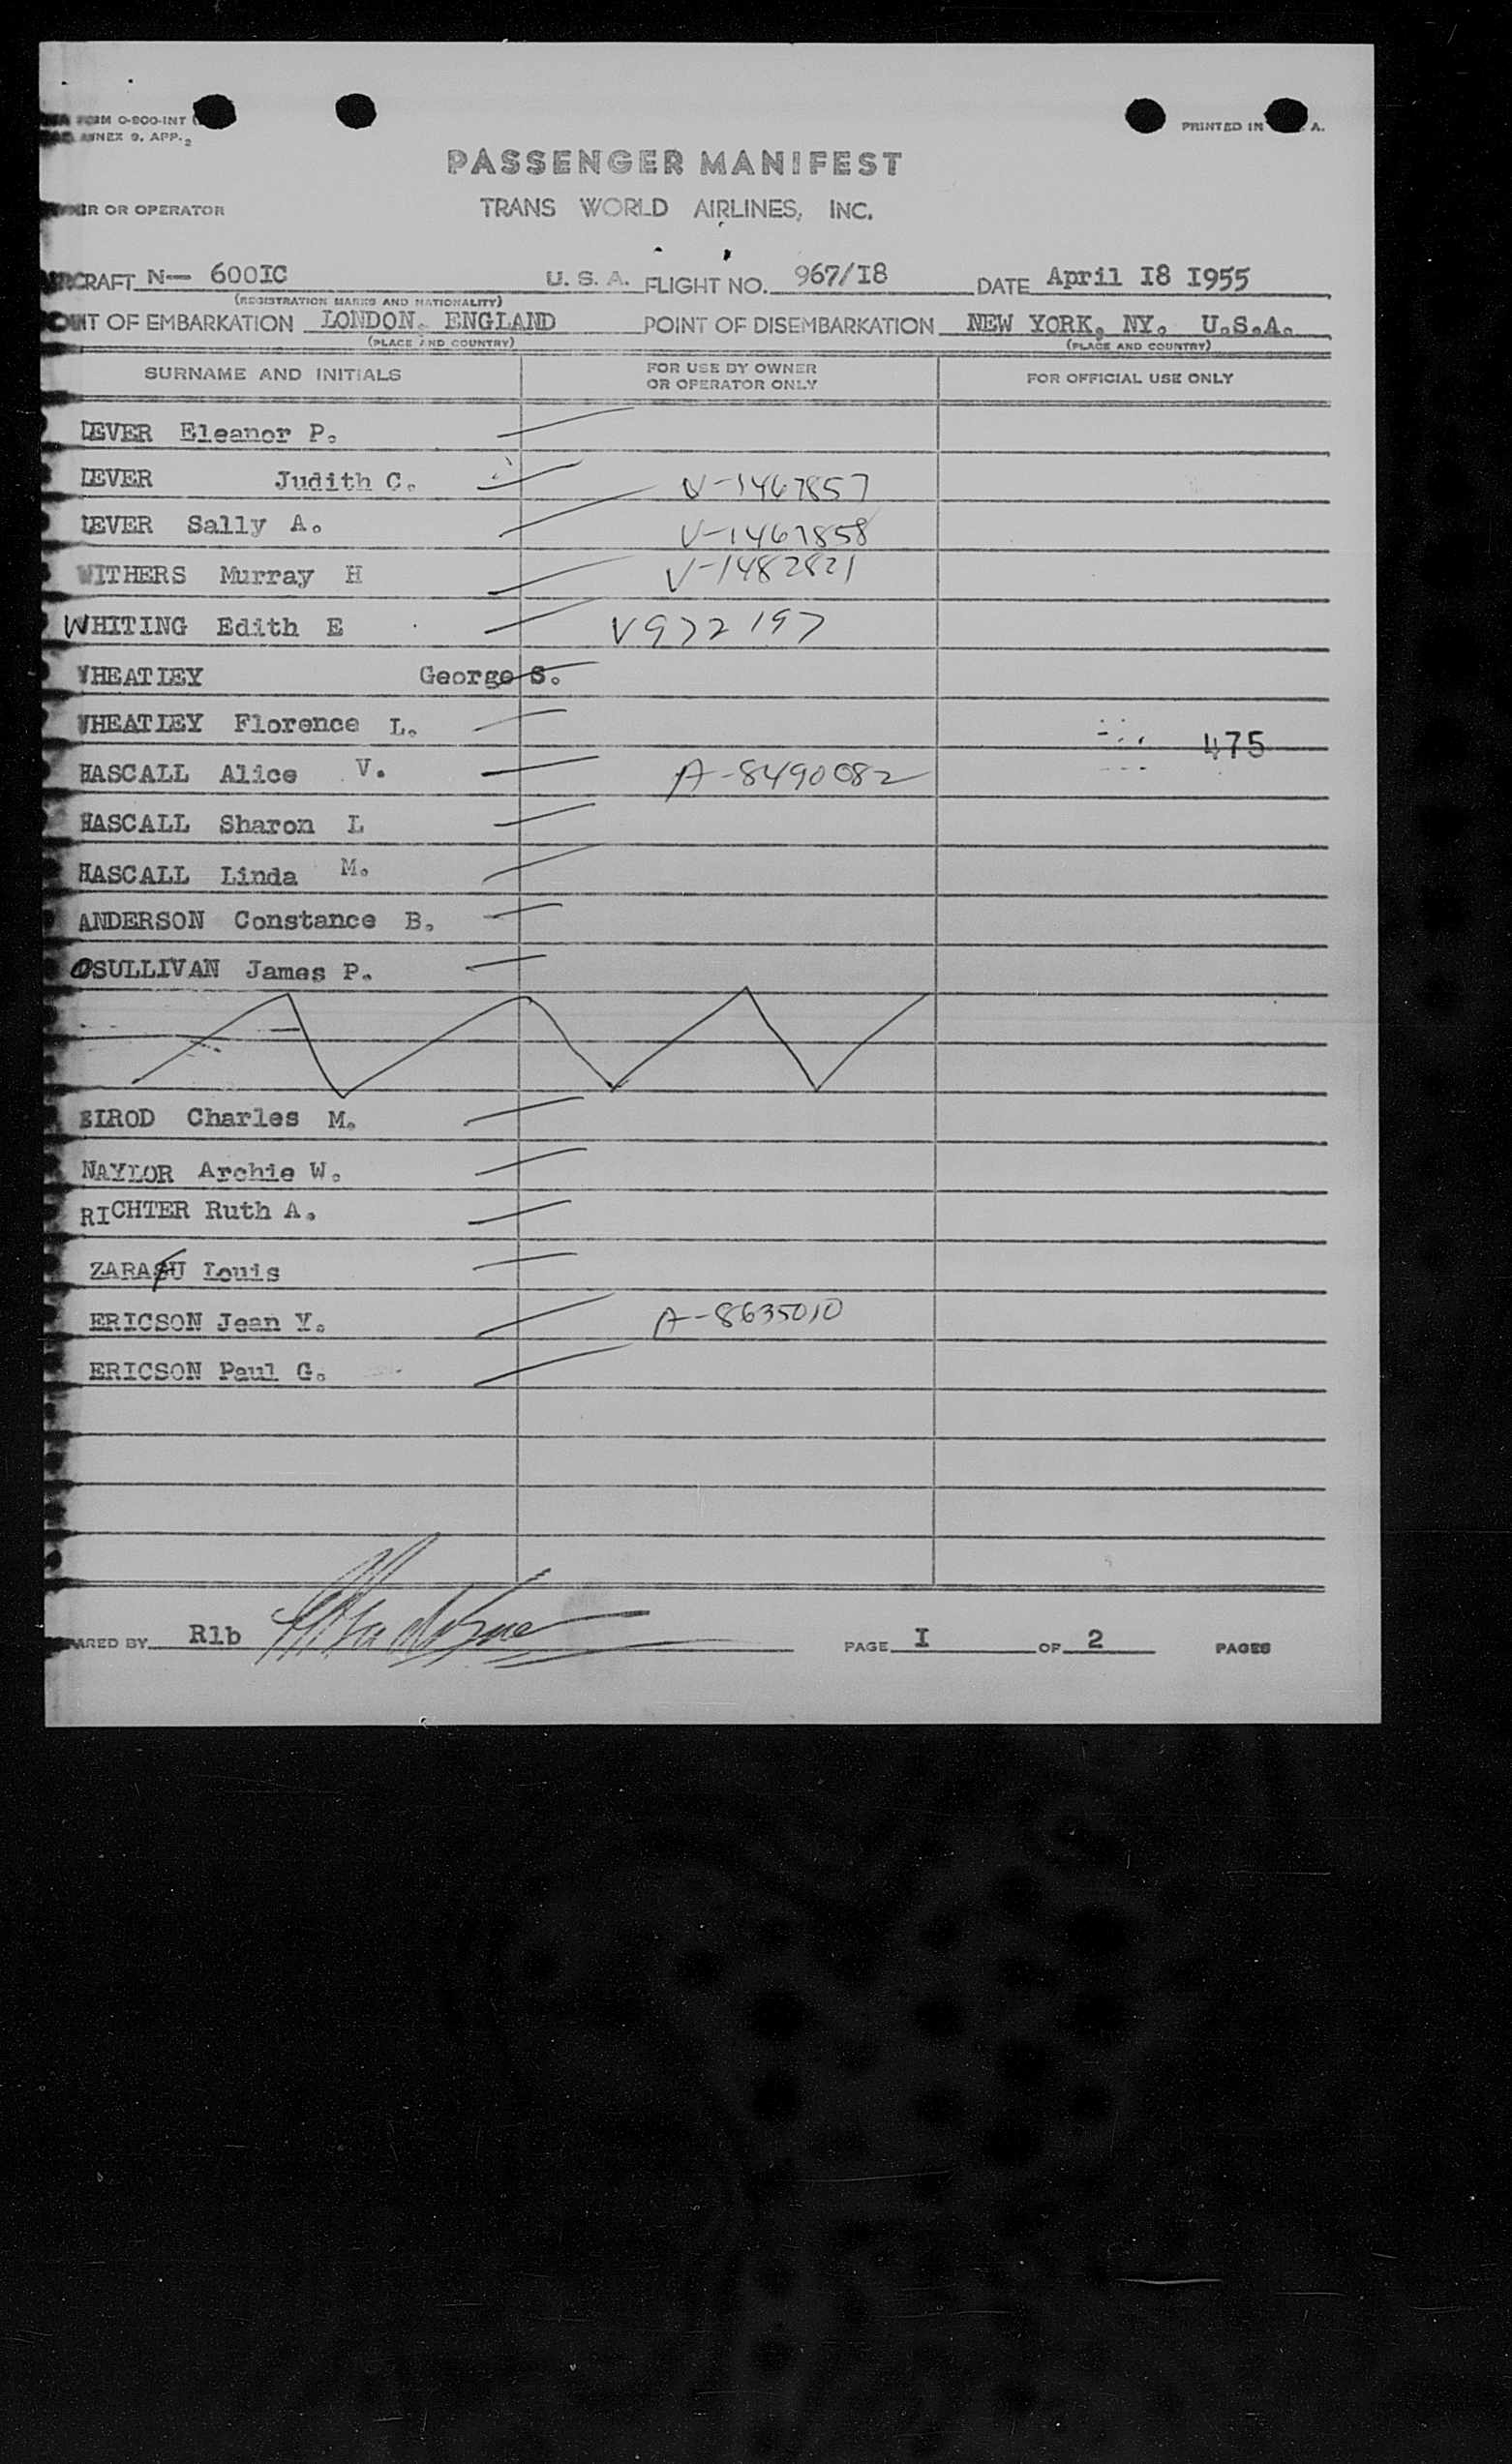 FORM 0-800-INT
ANNEX 9, APP. 2
PRINTED IN A.
PASSENGER MANIFEST
OR OPERATOR
TRANS WORLD AIRLINES, INC.
AIRCRAFT N— 600IC U. S. A. FLIGHT NO. 967/I8 DATE April I8 I955
(REGISTRATION MARKS AND NATIONALITY)
POINT OF EMBARKATION LONDON. ENGLAND POINT OF DISEMBARKATION NEW YORK, NY. U.S.A.
(PLACE AND COUNTRY) (PLACE AND COUNTRY)
SURNAME AND INITIALS FOR USE BY OWNER OR OPERATOR ONLY FOR OFFICIAL USE ONLY
LEVER Eleanor P.
LEVER Judith C. V-1467857
LEVER Sally A. V-1467858
WITHERS Murray H V-1482821
WHITING Edith E V972197
WHEATLEY George S.
WHEATLEY Florence L. 475
HASCALL Alice V. A-8490082
HASCALL Sharon L
HASCALL Linda M.
ANDERSON Constance B.
OSULLIVAN James P.
Charles M.
NAYLOR Archie W.
RICHTER Ruth A.
Louis
ERICSON Jean Y. A-8635010
ERICSON Paul G.
PARED BY R1b PAGE I OF 2 PAGES